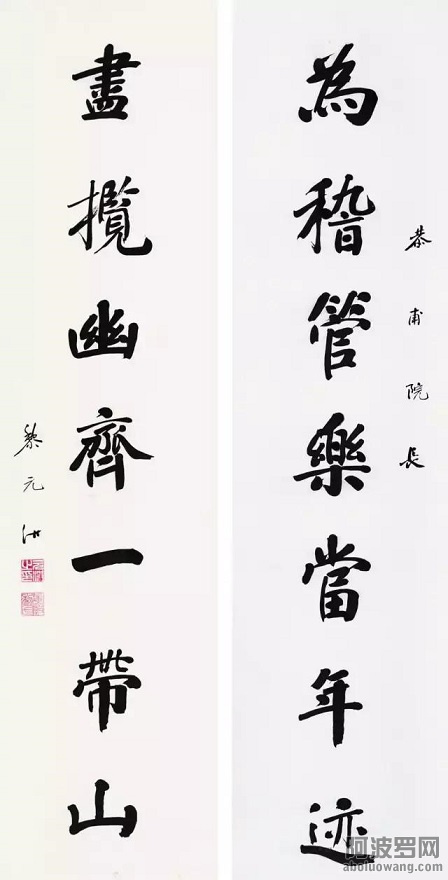 恭甫院長
為稽管樂當年迹
盡攬幽齊一帶山
黎元洪
阿波罗网
aboluowang.com